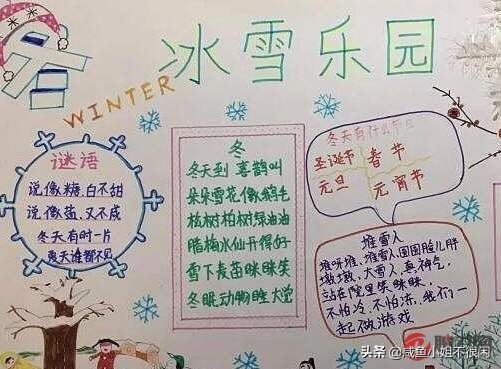 冬
冰雪乐园
WINTER
谜语
说像糖,白不甜
说像盐,又不咸
冬天有时一片
夏天谁都不见
冬
冬天到 喜鹊叫
朵朵雪花像鹅毛
松树柏树绿油油
腊梅水仙开得好
雪下麦苗眯眯笑
冬眠动物睡大觉
冬天有什么节日
圣诞节 春节
元旦 元宵节
堆雪人
堆呀堆,堆雪人,圆圆脸儿胖
墩墩,大雪人,真神气,
站在院里笑眯眯,
不怕冷,不怕冻,我们一
起做游戏
头条 @咸鱼小姐不很闲